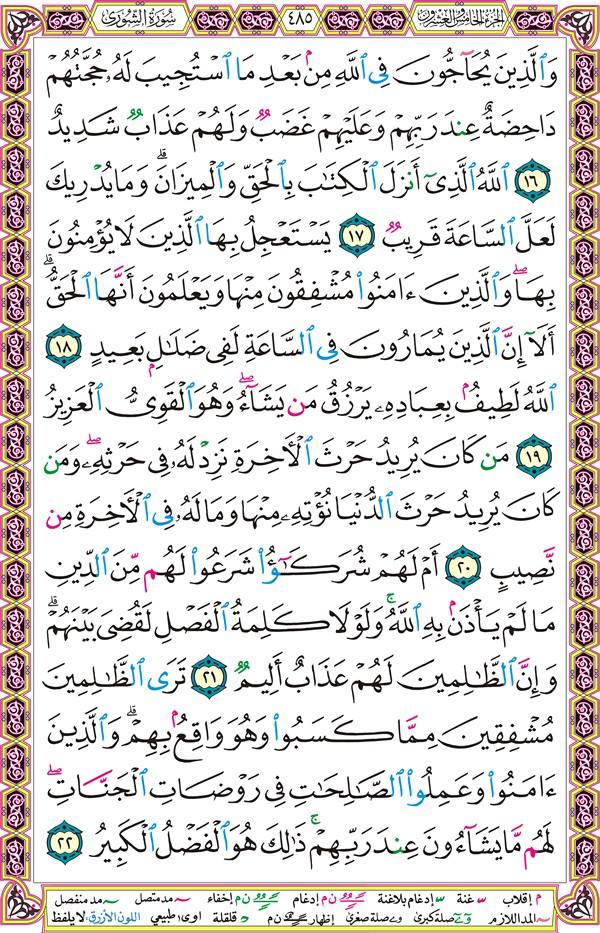 سُورَةُ الشُّورَىٰ ٤٨٥ الجُزْءُ الخَامِسُ وَالعِشْرُونَ
وَٱلَّذِينَ يُحَآجُّونَ فِى ٱللَّهِ مِنۢ بَعْدِ مَا ٱسْتُجِيبَ لَهُۥ حُجَّتُهُمْ
دَاحِضَةٌ عِندَ رَبِّهِمْ وَعَلَيْهِمْ غَضَبٌ وَلَهُمْ عَذَابٌ شَدِيدٌ
١٦ ٱللَّهُ ٱلَّذِىٓ أَنزَلَ ٱلْكِتَٰبَ بِٱلْحَقِّ وَٱلْمِيزَانَ ۗ وَمَا يُدْرِيكَ
لَعَلَّ ٱلسَّاعَةَ قَرِيبٌ ١٧ يَسْتَعْجِلُ بِهَا ٱلَّذِينَ لَا يُؤْمِنُونَ
بِهَا ۖ وَٱلَّذِينَ ءَامَنُوا۟ مُشْفِقُونَ مِنْهَا وَيَعْلَمُونَ أَنَّهَا ٱلْحَقُّ ۗ
أَلَآ إِنَّ ٱلَّذِينَ يُمَارُونَ فِى ٱلسَّاعَةِ لَفِى ضَلَٰلٍۭ بَعِيدٍ ١٨
ٱللَّهُ لَطِيفٌۢ بِعِبَادِهِۦ يَرْزُقُ مَن يَشَآءُ ۖ وَهُوَ ٱلْقَوِىُّ ٱلْعَزِيزُ
١٩ مَن كَانَ يُرِيدُ حَرْثَ ٱلْـَٔاخِرَةِ نَزِدْ لَهُۥ فِى حَرْثِهِۦ ۖ وَمَن
كَانَ يُرِيدُ حَرْثَ ٱلدُّنْيَا نُؤْتِهِۦ مِنْهَا وَمَا لَهُۥ فِى ٱلْـَٔاخِرَةِ مِن
نَّصِيبٍ ٢٠ أَمْ لَهُمْ شُرَكَٰٓؤُا۟ شَرَعُوا۟ لَهُم مِّنَ ٱلدِّينِ
مَا لَمْ يَأْذَنۢ بِهِ ٱللَّهُ ۚ وَلَوْلَا كَلِمَةُ ٱلْفَصْلِ لَقُضِىَ بَيْنَهُمْ ۗ
وَإِنَّ ٱلظَّٰلِمِينَ لَهُمْ عَذَابٌ أَلِيمٌ ٢١ تَرَى ٱلظَّٰلِمِينَ
مُشْفِقِينَ مِمَّا كَسَبُوا۟ وَهُوَ وَاقِعٌۢ بِهِمْ ۗ وَٱلَّذِينَ
ءَامَنُوا۟ وَعَمِلُوا۟ ٱلصَّٰلِحَاتِ فِى رَوْضَاتِ ٱلْجَنَّاتِ ۖ
لَهُم مَّا يَشَآءُونَ عِندَ رَبِّهِمْ ۚ ذَٰلِكَ هُوَ ٱلْفَضْلُ ٱلْكَبِيرُ ٢٢
م إقلاب غنة إدغام بلاغنة ن م إدغام ن م إخفاء مد متصل مد منفصل
المد اللازم صلة كبرى صلة صغرى إظهار ن م قلقلة اوى؛ طبيعي اللون الأزرق: لا يلفظ